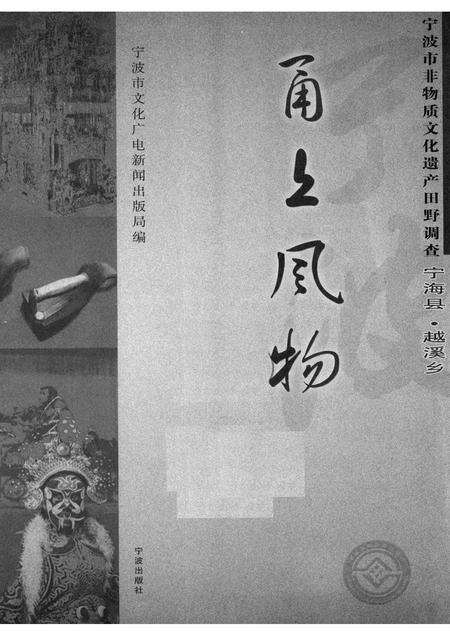 宁波市非物质文化遗产田野调查 宁海县·越溪乡
甬上风物
宁波市文化广电新闻出版局编
宁波出版社